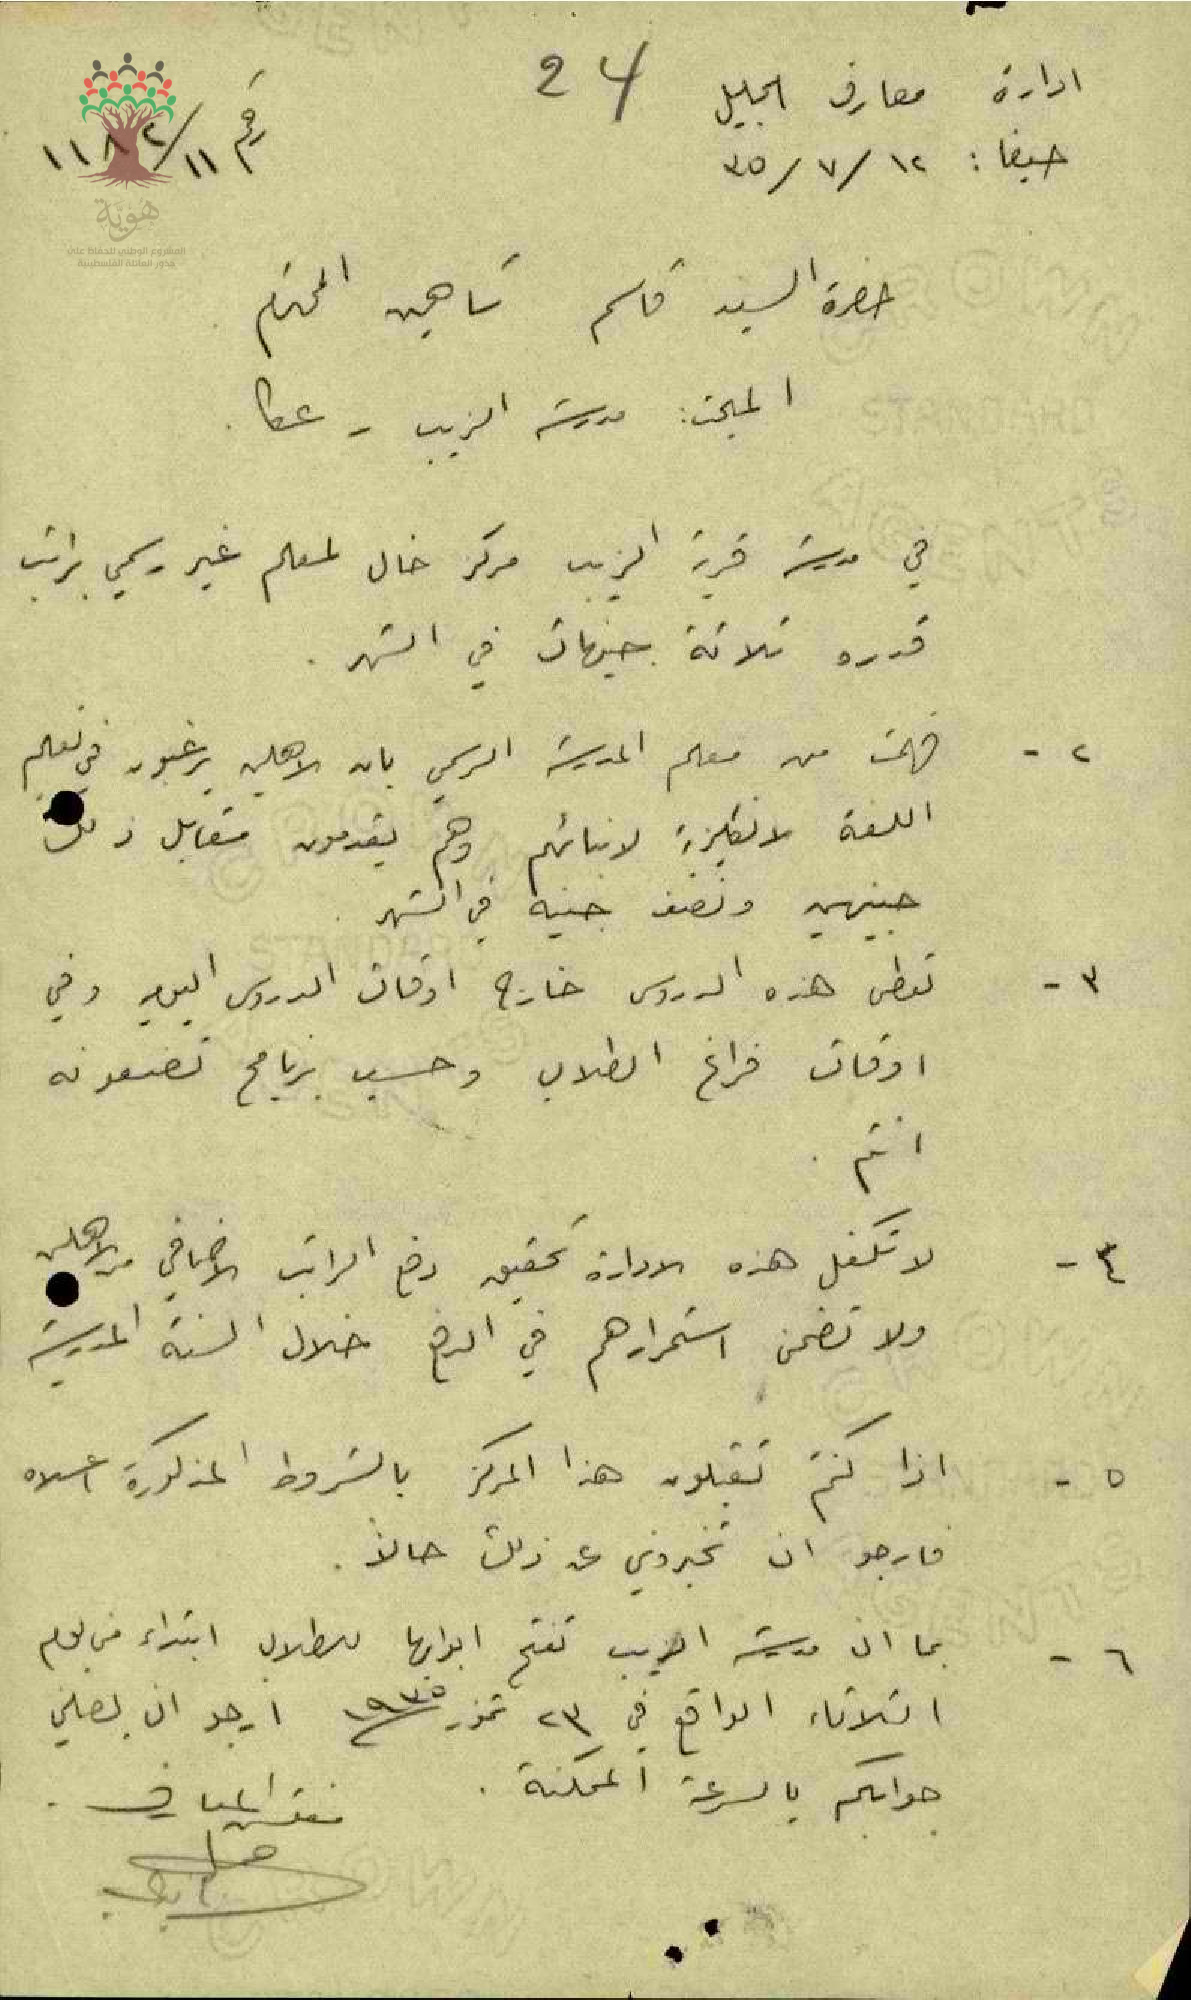 ادارة معارف الجليل
24
حيفا: ١٢/٧/٣٥
رقم ١١/١١٨٢
هويّة
المشروع الوطني للحفاظ على
جذور العائلة الفلسطينية
حضرة السيد قاسم شاهين المحترم
المبحث: مدرسة الزيب - عكا.
في مدرسة قرية الزيب مركز خال لمعلم غير رسمي براتب
قدره ثلاثة جنيهات في الشهر.
٢- فهمت من معلم المدرسة الرسمي بان الاهلين يرغبون في تعليم
اللغة الانكليزية لابنائهم وهم يقدمون مقابل ذلك
جنيهين ونصف جنيه في الشهر.
٣- تعطى هذه الدروس خارج اوقات الدروس اليومية وفي
اوقات فراغ الطلاب وحسب برنامج تضعونه
انتم.
٤- لا تكفل هذه الادارة تحقيق دفع الراتب الاضافي من الاهلين
ولا تضمن استمرارهم في الدفع خلال السنة المدرسية
٥- اذا كنتم تقبلون هذا المركز بالشروط المذكورة اعلاه
فارجو ان تخبروني عن ذلك حالاً.
٦- بما ان مدرسة الزيب تفتح ابوابها للطلاب ابتداء من يوم
الثلاثاء الواقع في ٢٣ تموز ١٩٣٥ ارجو ان يصلني
جوابكم بالسرعة الممكنة.
مفتش المعارف.